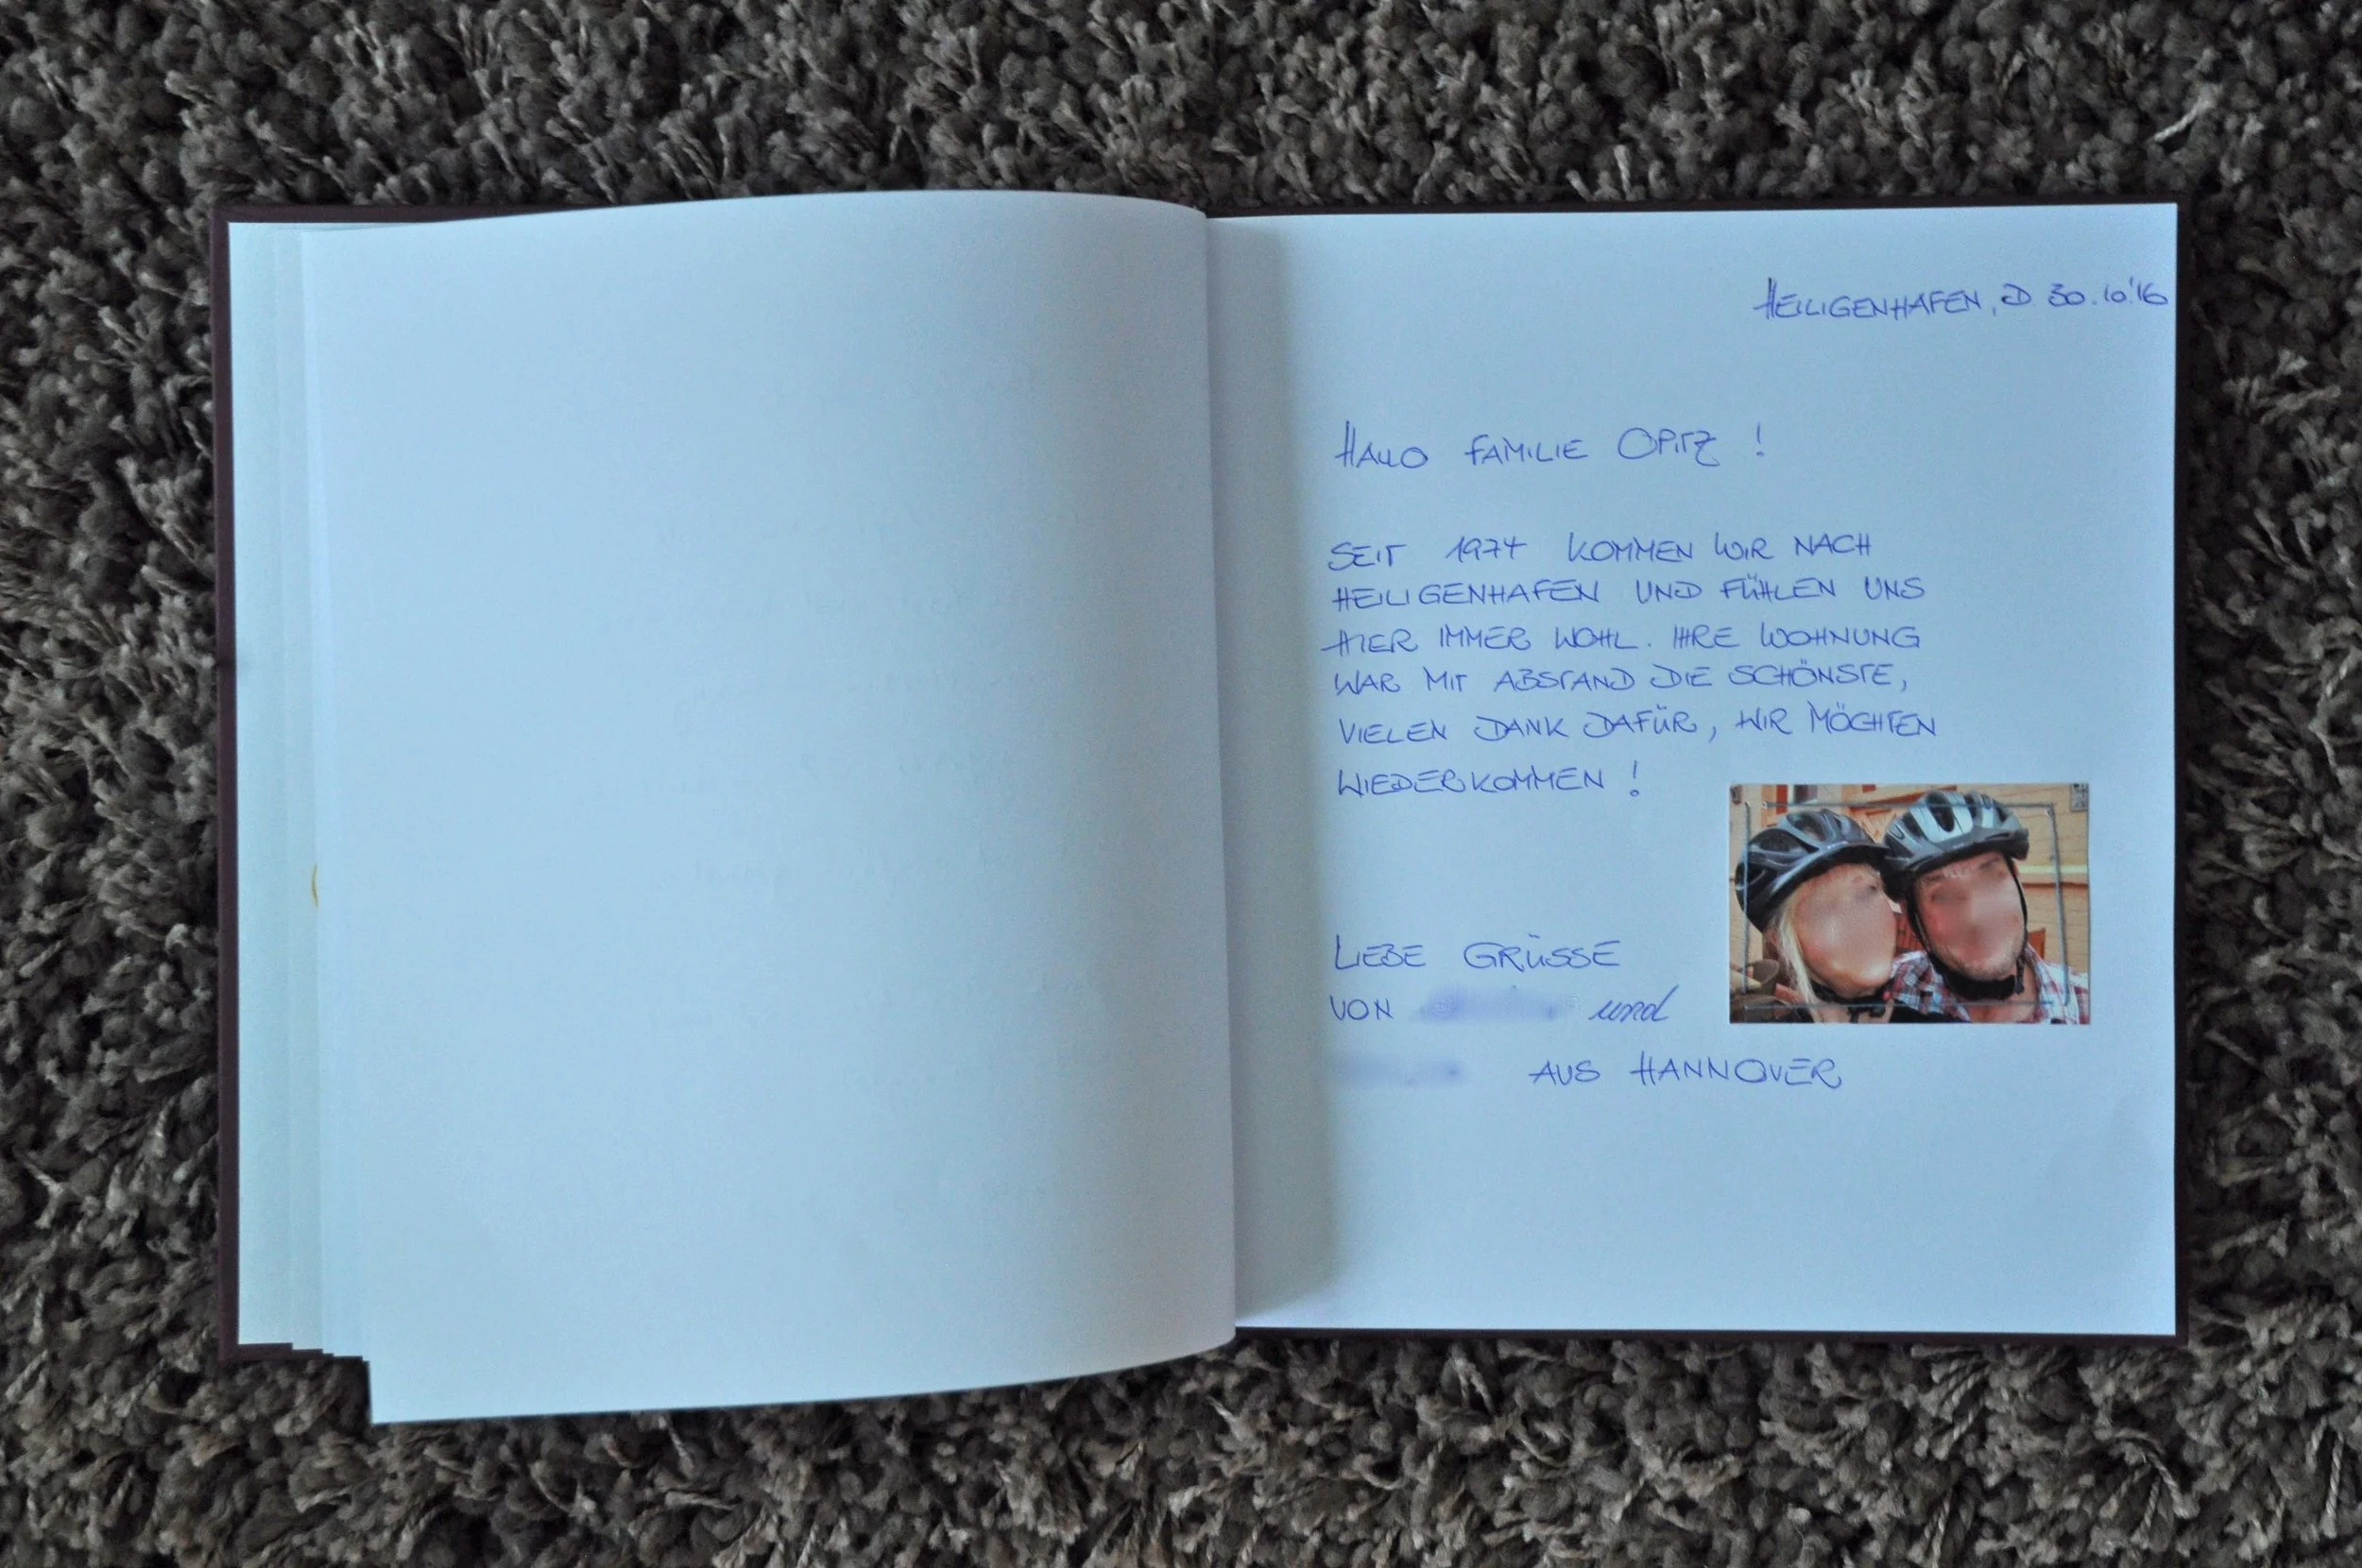 HEILIGENHAFEN, D. 30.10.'16
HALLO FAMILIE OPITZ !
SEIT 1974 KOMMEN WIR NACH
HEILIGENHAFEN UND FÜHLEN UNS
HIER IMMER WOHL. IHRE WOHNUNG
WAR MIT ABSTAND DIE SCHÖNSTE,
VIELEN DANK DAFÜR, WIR MÖCHTEN
WIEDERKOMMEN !
LIEBE GRÜSSE
VON und
AUS HANNOVER